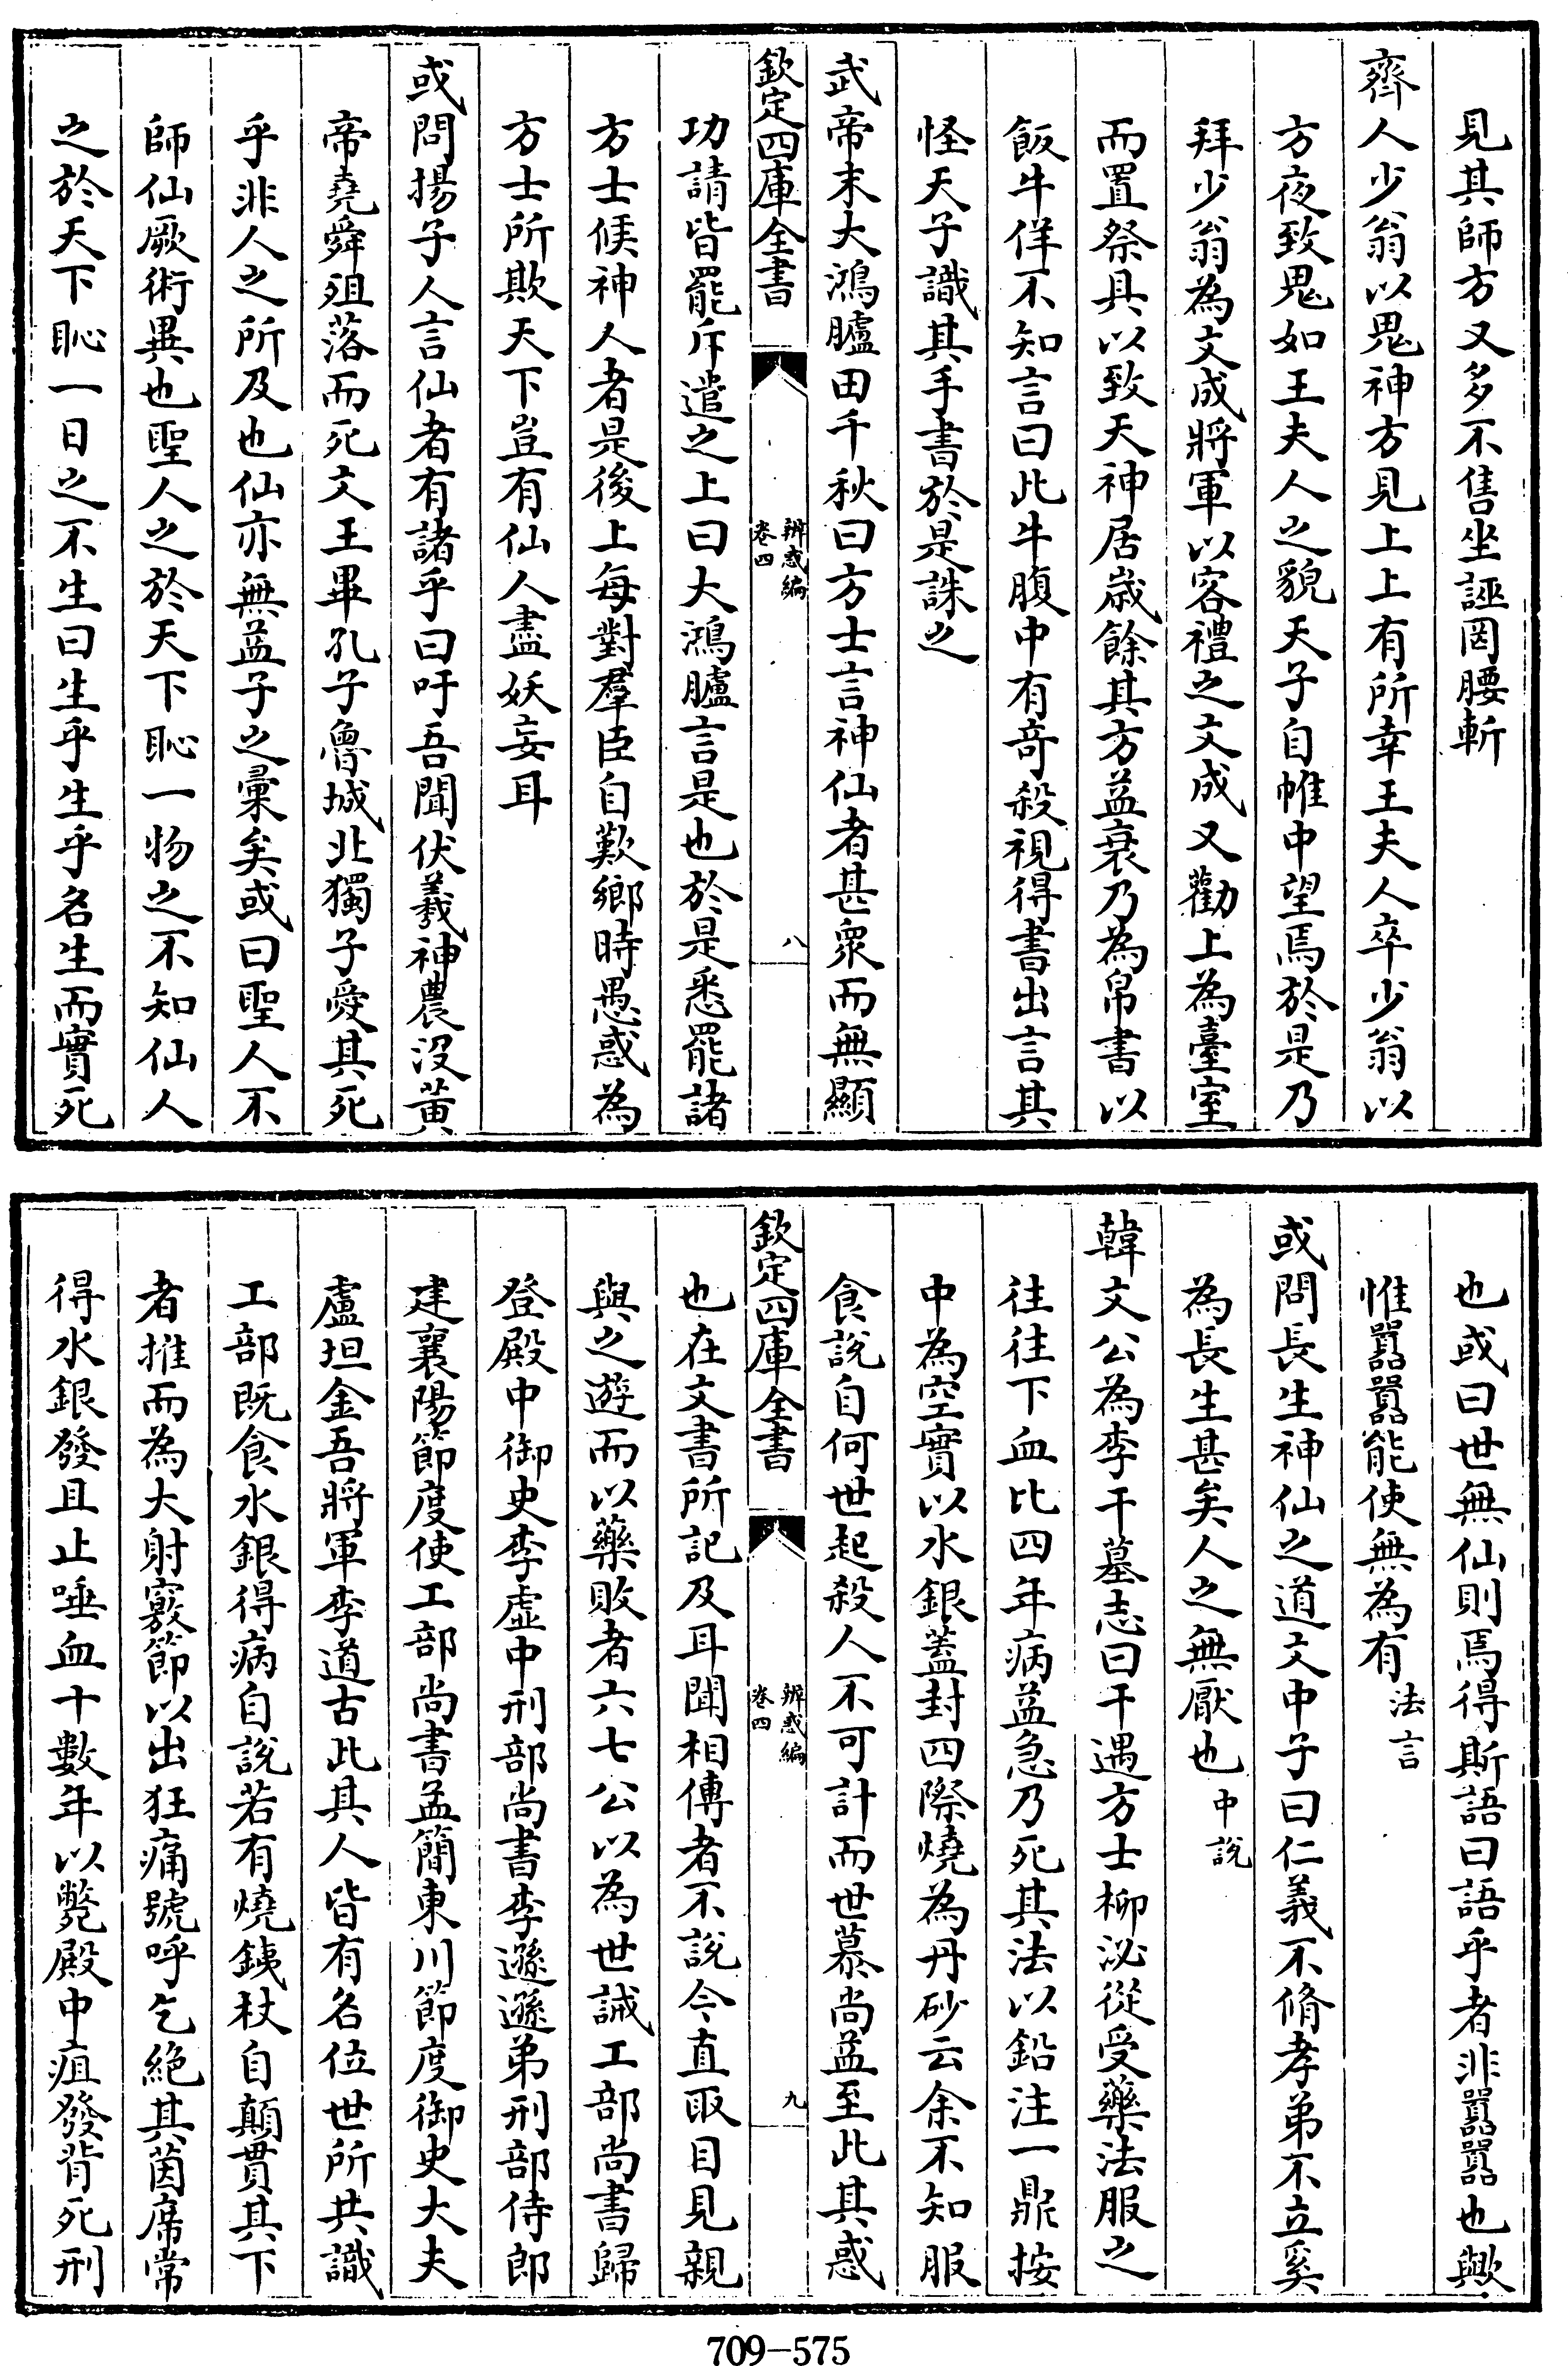 見其師方又多不售坐誣罔腰斬
齊人少翁以鬼神方見上上有所幸王夫人卒少翁以
方夜致鬼如王夫人之貌天子自帷中望焉於是乃
拜少翁為文成將軍以客禮之文成又勸上為臺室
而置祭具以致天神居歲餘其方益衰乃為帛書以
飯牛佯不知言曰此牛腹中有奇殺視得書出言其
怪天子識其手書於是誅之
武帝末大鴻臚田千秋曰方士言神仙者甚衆而無顯
欽定四庫全書
辨惑編
卷四
八
功請皆罷斥遣之上曰大鴻臚言是也於是悉罷諸
方士候神人者是後上每對羣臣自歎鄉時愚惑為
方士所欺天下豈有仙人盡妖妄耳
或問揚子人言仙者有諸乎曰吁吾聞伏羲神農沒黄
帝堯舜殂落而死文王畢孔子魯城北獨子愛其死
乎非人之所及也仙亦無益子之彙矣或曰聖人不
師仙厥術異也聖人之於天下恥一物之不知仙人
之於天下恥一日之不生曰生乎生乎名生而實死
也或曰世無仙則焉得斯語曰語乎者非囂囂也歟
惟囂囂能使無為有法言
或問長生神仙之道文中子曰仁義不脩孝弟不立奚
為長生甚矣人之無厭也中說
韓文公為李干墓志曰干遇方士柳泌從受藥法服之
往往下血比四年病益急乃死其法以鉛注一鼎按
中為空實以水銀蓋封四際燒為丹砂云余不知服
食說自何世起殺人不可計而世慕尚益至此其惑
欽定四庫全書
辨惑編
卷四
九
也在文書所記及耳聞相傳者不說今直取目見親
與之遊而以藥敗者六七公以為世誡工部尚書歸
登殿中御史李虛中刑部尚書李遜遜弟刑部侍郎
建襄陽節度使工部尚書孟簡東川節度御史大夫
盧坦金吾將軍李道古此其人皆有名位世所共識
工部既食水銀得病自說若有燒鐵杖自顛貫其下
者摧而為火射竅節以出狂痛號呼乞絶其茵席常
得水銀發且止唾血十數年以斃殿中疽發背死刑
709—575